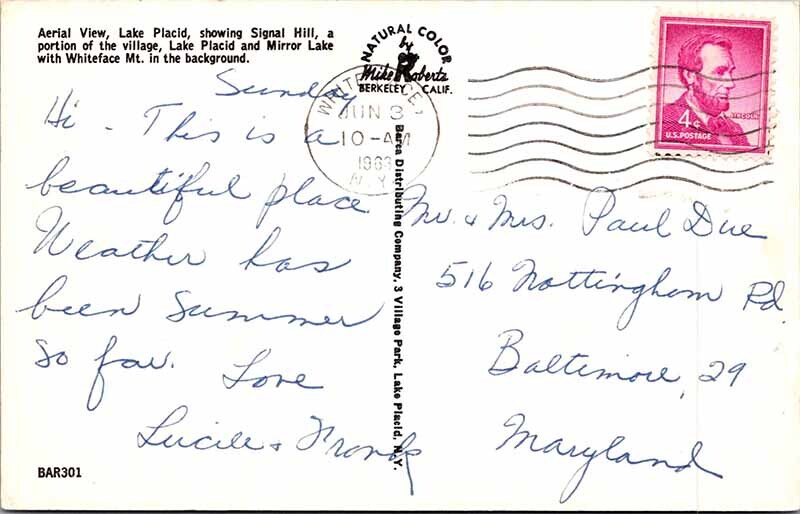 Aerial View, Lake Placid, showing Signal Hill, a
portion of the village, Lake Placid and Mirror Lake
with Whiteface Mt. in the background.
NATURAL COLOR
by
Mike Roberts
BERKELEY CALIF.
JUN 3
10-AM
1963
N.Y.
LINCOLN
4¢
U.S. POSTAGE
Sunday
Hi - This is a
beautiful place
Weather has
been summer
so far. Love
Lucile & Frank
Barca Distributing Company, 3 Village Park, Lake Placid, N.Y.
Mr. & Mrs. Paul Due
516 Nottingham Rd.
Baltimore, 29
Maryland
BAR301